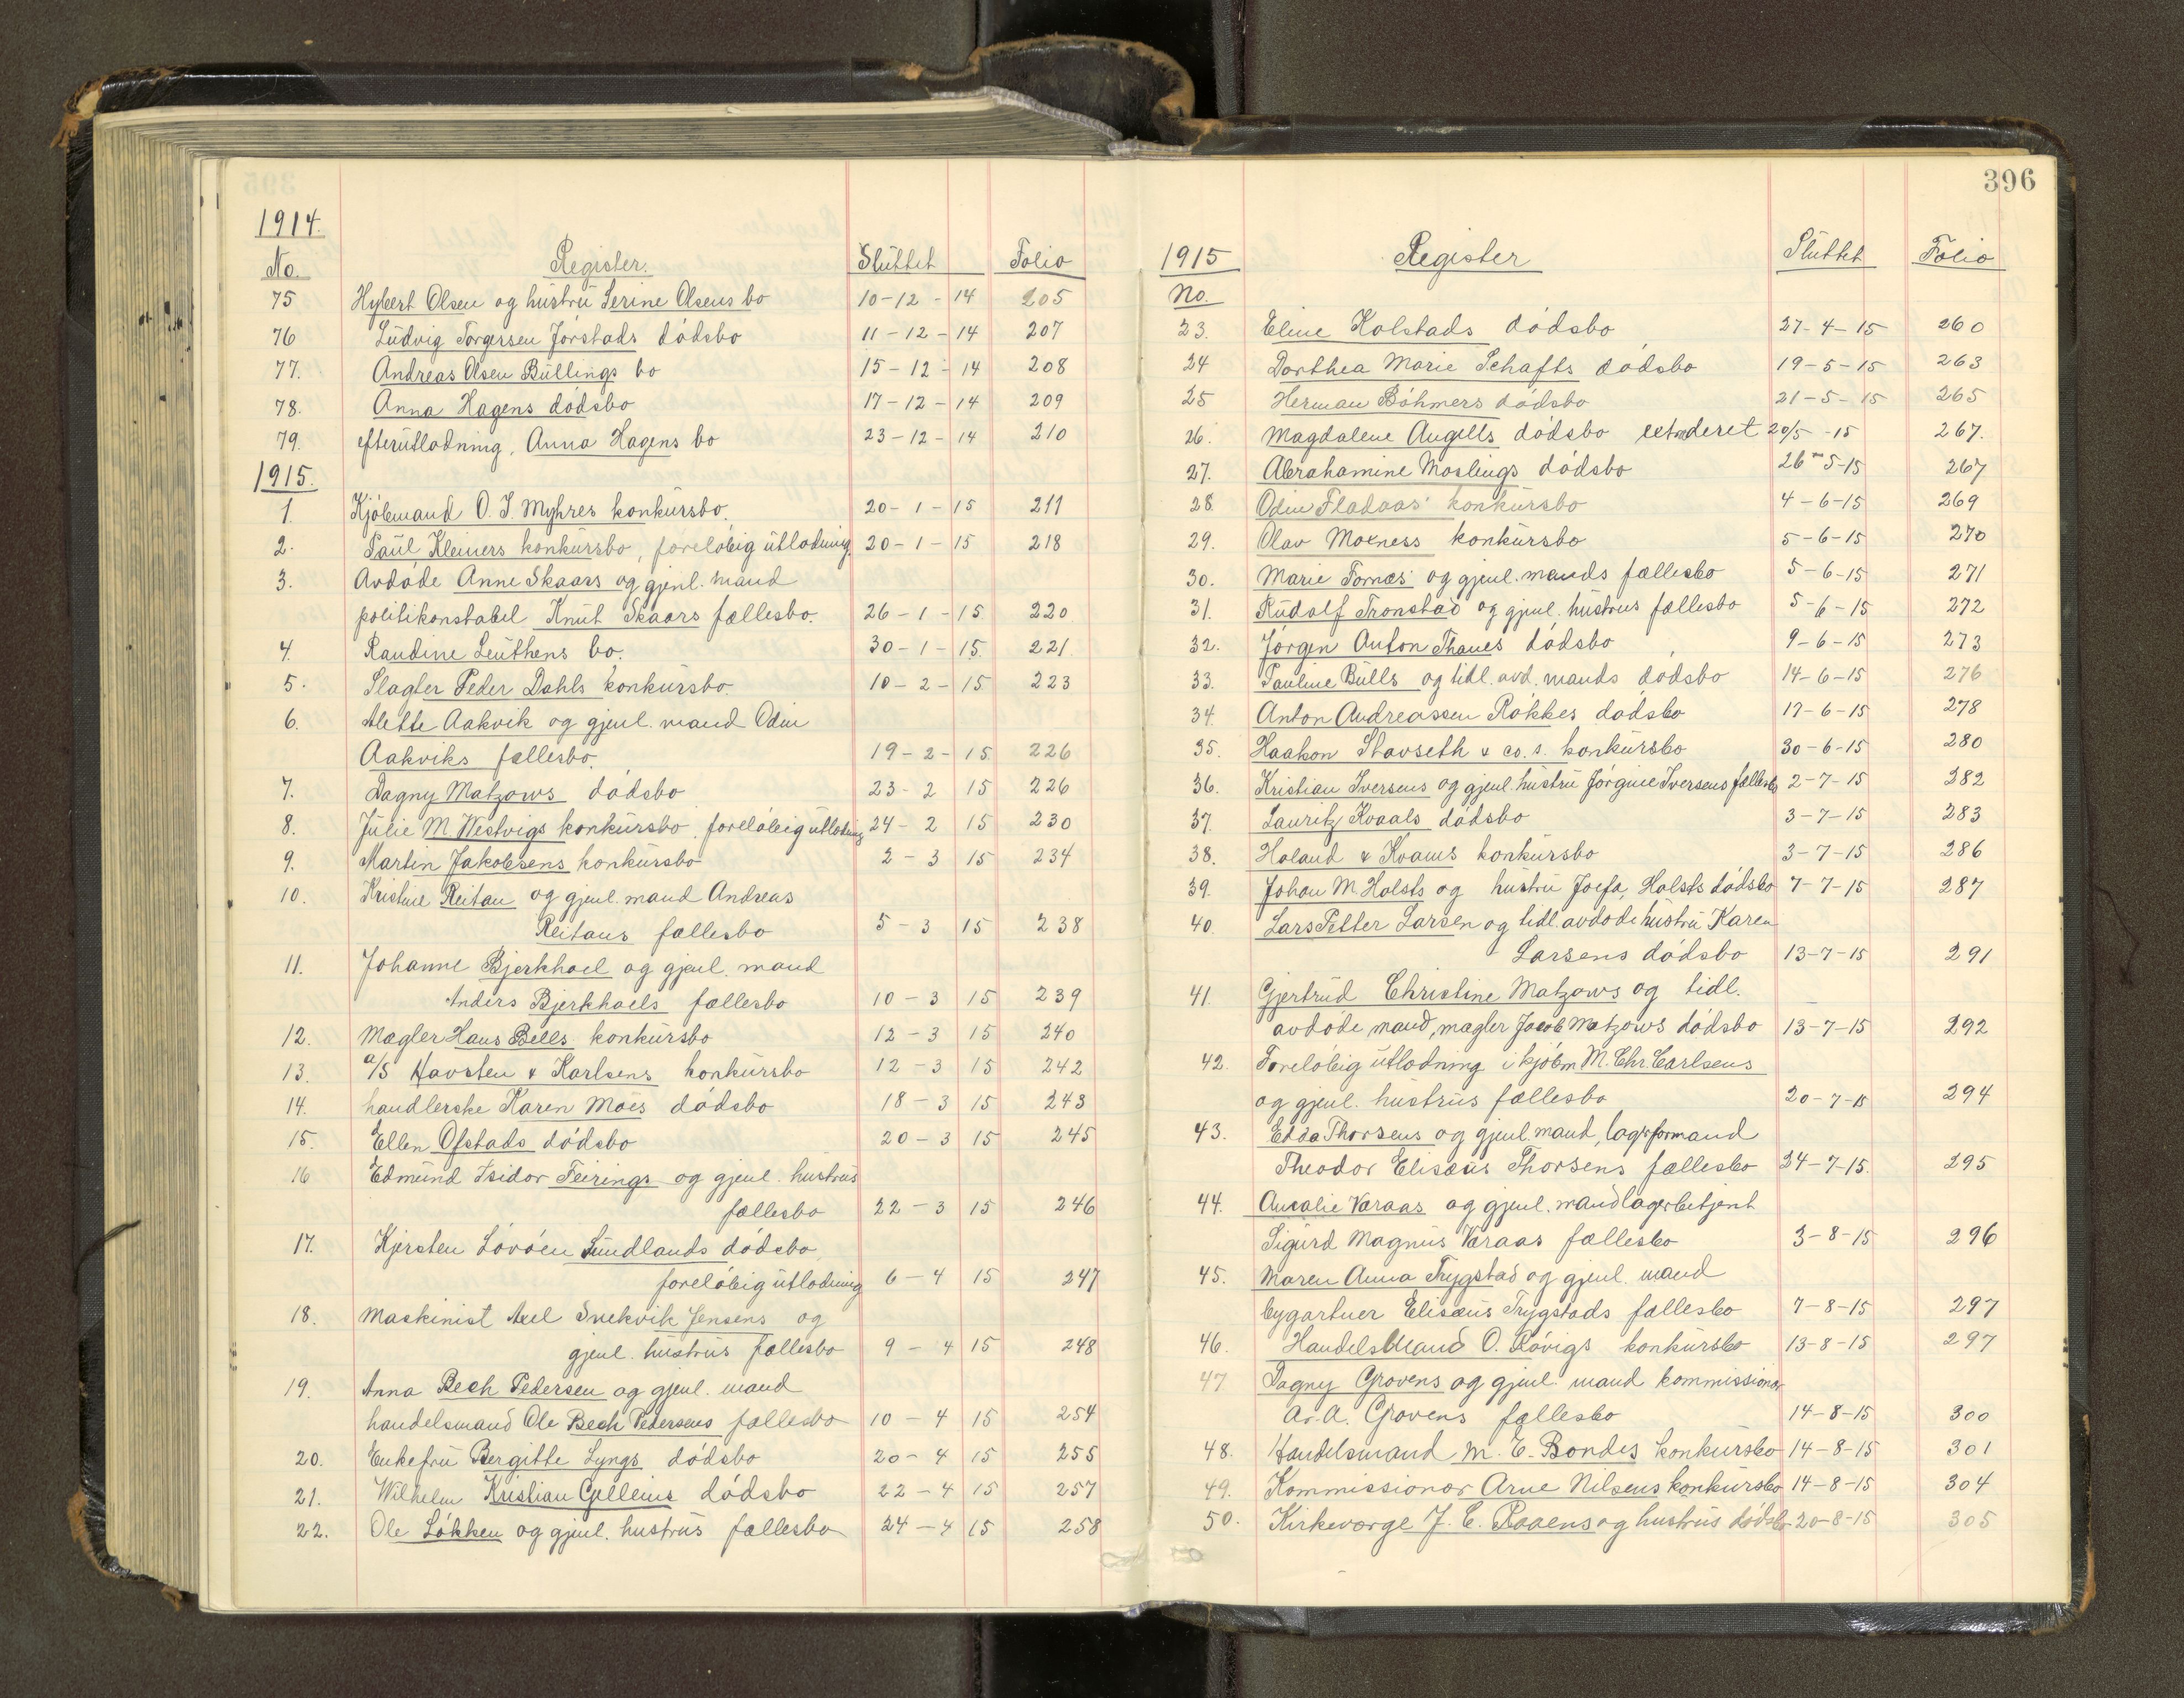 1914.
No. Register. Sluttet Folio
75 Hybert Olsen og hustru Serine Olsens bo 10-12-14 205
76 Ludvig Torgersen Jørstads dødsbo 11-12-14 207
77. Andreas Olsen Bullings bo 15-12-14 208
78. Anna Hagens dødsbo 17-12-14 209
79. efterutlodning, Anna Hagens bo 23-12-14 210
1915.
1. Kjøbmand O. J. Myhres konkursbo. 20-1-15 211
2. Paul Kleiners konkursbo, foreløbig utlodning. 20-1-15 218
3. Avdøde Anne Skaars og gjenl. mand
politikonstabel Knut Skaars fællesbo. 26-1-15 220
4. Randine Leuthens bo. 30-1-15. 221
5. Slagter Peder Dahls konkursbo. 10-2-15 223
6. Alette Aakvik og gjenl. mand Odin
Aakviks fællesbo. 19-2-15. 226
7. Dagny Matzows dødsbo 23-2 15 226
8. Julie M. Westvigs konkursbo, foreløbig utlodning 24-2 15 230
9. Martin Jakobsens konkursbo 2-3 15 234
10. Kristine Reitan og gjenl. mand Andreas
Reitans fællesbo 5-3 15 238
11. Johanne Bjerkhoel og gjenl. mand
Anders Bjerkhoels fællesbo 10-3 15 239
12. Mægler Hans Bells konkursbo 12-3 15 240
13. a/s Havsten & Karlsens konkursbo 12-3 15 242
14. handlerske Karen Moes dødsbo 18-3 15 243
15. Ellen Ofstads dødsbo 20-3 15 245
16 Edmund Isidor Feirings og gjenl. hustrus
fællesbo 22-3 15 246
17. Kjersten Løvøen Sundlands dødsbo
foreløbig utlodning 6-4 15 247
18. Maskinist Axel Snekvik Jensens og
gjenl. hustrus fællesbo 9-4 15 248
19. Anna Bech Pedersen og gjenl. mand
handelsmand Ole Bech Pedersens fællesbo 10-4 15 254
20. Enkefru Bergitte Lyngs dødsbo 20-4 15 255
21. Wilhelm Kristian Gelleins dødsbo 22-4 15 257
22. Ole Løkken og gjenl. hustrus fællesbo 24-4 15 258
396
1915 Register Sluttet Folio
No.
23. Eline Kolstads dødsbo 27-4-15 260
24 Dorthea Marie Schafts dødsbo 19-5-15 263
25 Herman Bøhmers dødsbo 21-5-15 265
26. Magdalene Angells dødsbo extraderet 20/5-15 267.
27. Abrahamine Moslings dødsbo 26-5-15 267
28. Odin Fladaas' konkursbo 4-6-15 269
29. Olav Moxness konkursbo 5-6-15 270
30. Marie Fornæs' og gjenl. mands fællesbo 5-6-15 271
31. Rudolf Tronstad og gjenl. hustrus fællesbo 5-6-15 272
32. Jørgen Anton Thanes dødsbo 9-6-15 273
33. Pauline Bulls og tidl. avd. mands dødsbo 14-6-15 276
34. Anton Andreassen Røkkes dødsbo 17-6-15 278
35. Haakon Stavseth & co. s. konkursbo 30-6-15 280
36. Kristian Iversens og gjenl. hustru Jørgine Iversens fællesbo 2-7-15 282
37. Lauritz Kvaals dødsbo 3-7-15 283
38. Holand & Kvams konkursbo 3-7-15 286
39. Johan M. Holsts og hustru Josefa Holsts dødsbo 7-7-15 287
40. Lars Petter Larsen og tidl. avdøde hustru Karen
Larsens dødsbo 13-7-15 291
41. Gjertrud Christine Matzows og tidl.
avdøde mand, mægler Jacob Matzows dødsbo 13-7-15 292
42. Foreløbig utlodning i kjøbm M. Chr. Carlsens
og gjenl. hustrus fællesbo 20-7-15 294
43. Edda Thorsens og gjenl. mand, lagerformand
Theodor Elisæus Thorsens fællesbo 24-7-15. 295
44. Amalie Væraas og gjenl. mand lagerbetjent
Sigurd Magnus Væraas fællesbo 3-8-15 296
45. Maren Anna Trygstad og gjenl. mand
bygartner Elisæus Trygstads fællesbo 7-8-15 297
46. Handelsmand O. Røvigs konkursbo 13-8-15 297
47 Dagny Grovens og gjenl. mand kommissionær
A. Grovens fællesbo 14-8-15 300
48. Handelsmand M. E. Bondes konkursbo 14-8-15 301
49. Kommissionær Arne Nilsens konkursbo 14-8-15 304
50. Kirkeværge J. E. Raaens og hustrus dødsbo 20-8-15 305